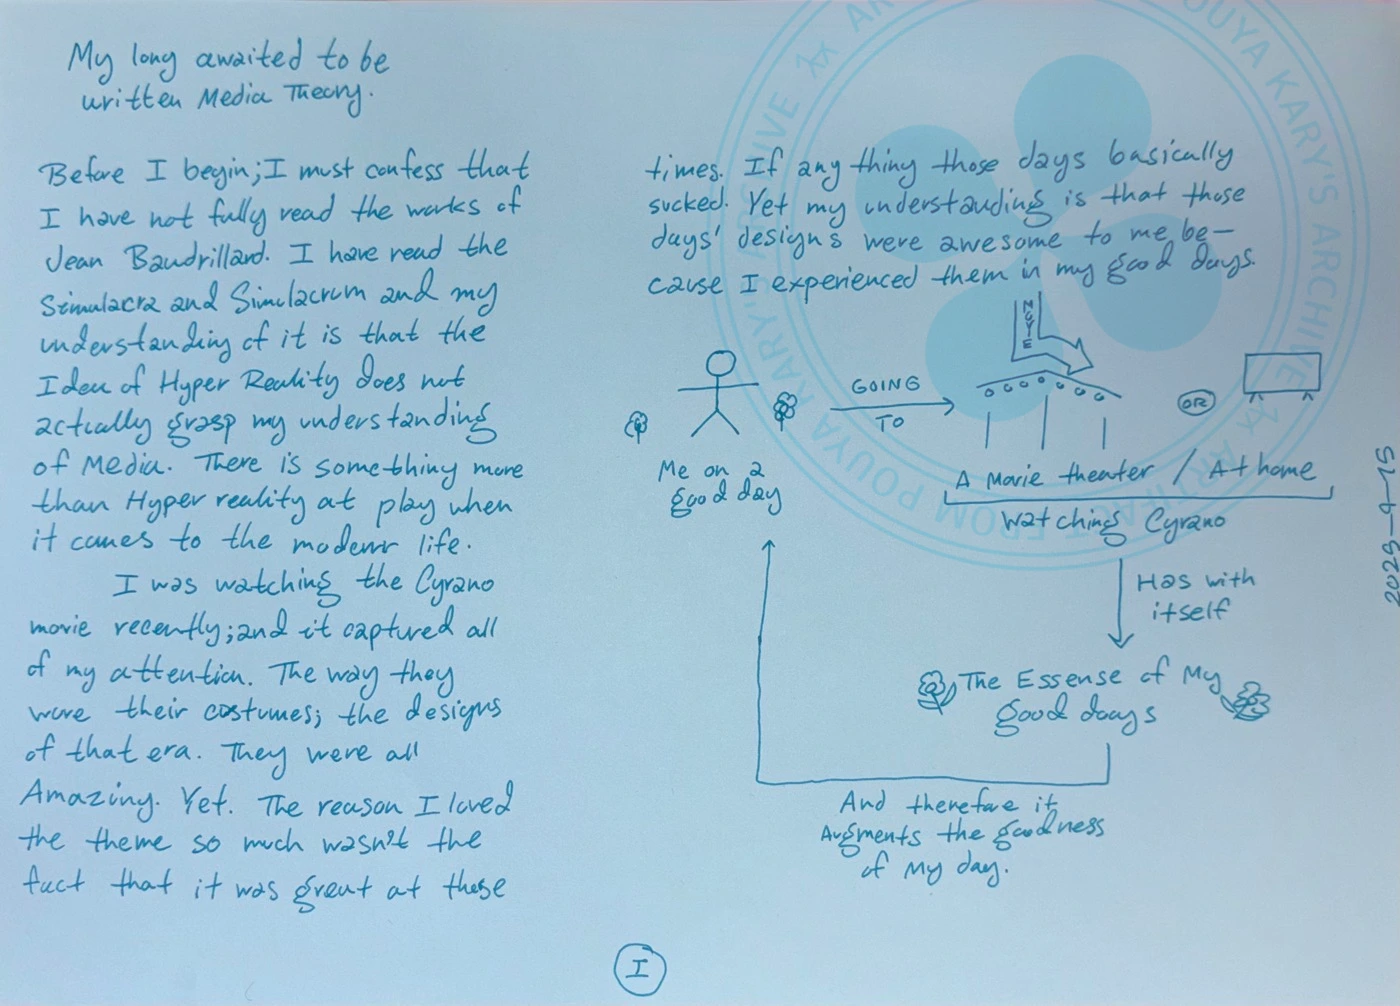 My long awaited to be
written Media Theory.
Before I begin; I must confess that
I have not fully read the works of
Jean Baudrillard. I have read the
Simulacra and Simulacrum and my
understanding of it is that the
Idea of Hyper Reality does not
actually grasp my understanding
of Media. There is something more
than Hyper reality at play when
it comes to the modern life.
I was watching the Cyrano
movie recently; and it captured all
of my attention. The way they
wore their costumes; the designs
of that era. They were all
Amazing. Yet. The reason I loved
the theme so much wasn't the
fact that it was great at those
times. If any thing those days basically
sucked. Yet my understanding is that those
days' designs were awesome to me be-
cause I experienced them in my good days.
MOVIE
GOING
TO
OR
Me on a
good day
A Movie theater / At home
Watching Cyrano
Has with
itself
The Essense of My
good days
And therefore it
Augments the goodness
of My day.
I
ARTIFACT FROM POUYA KARY'S ARCHIVE